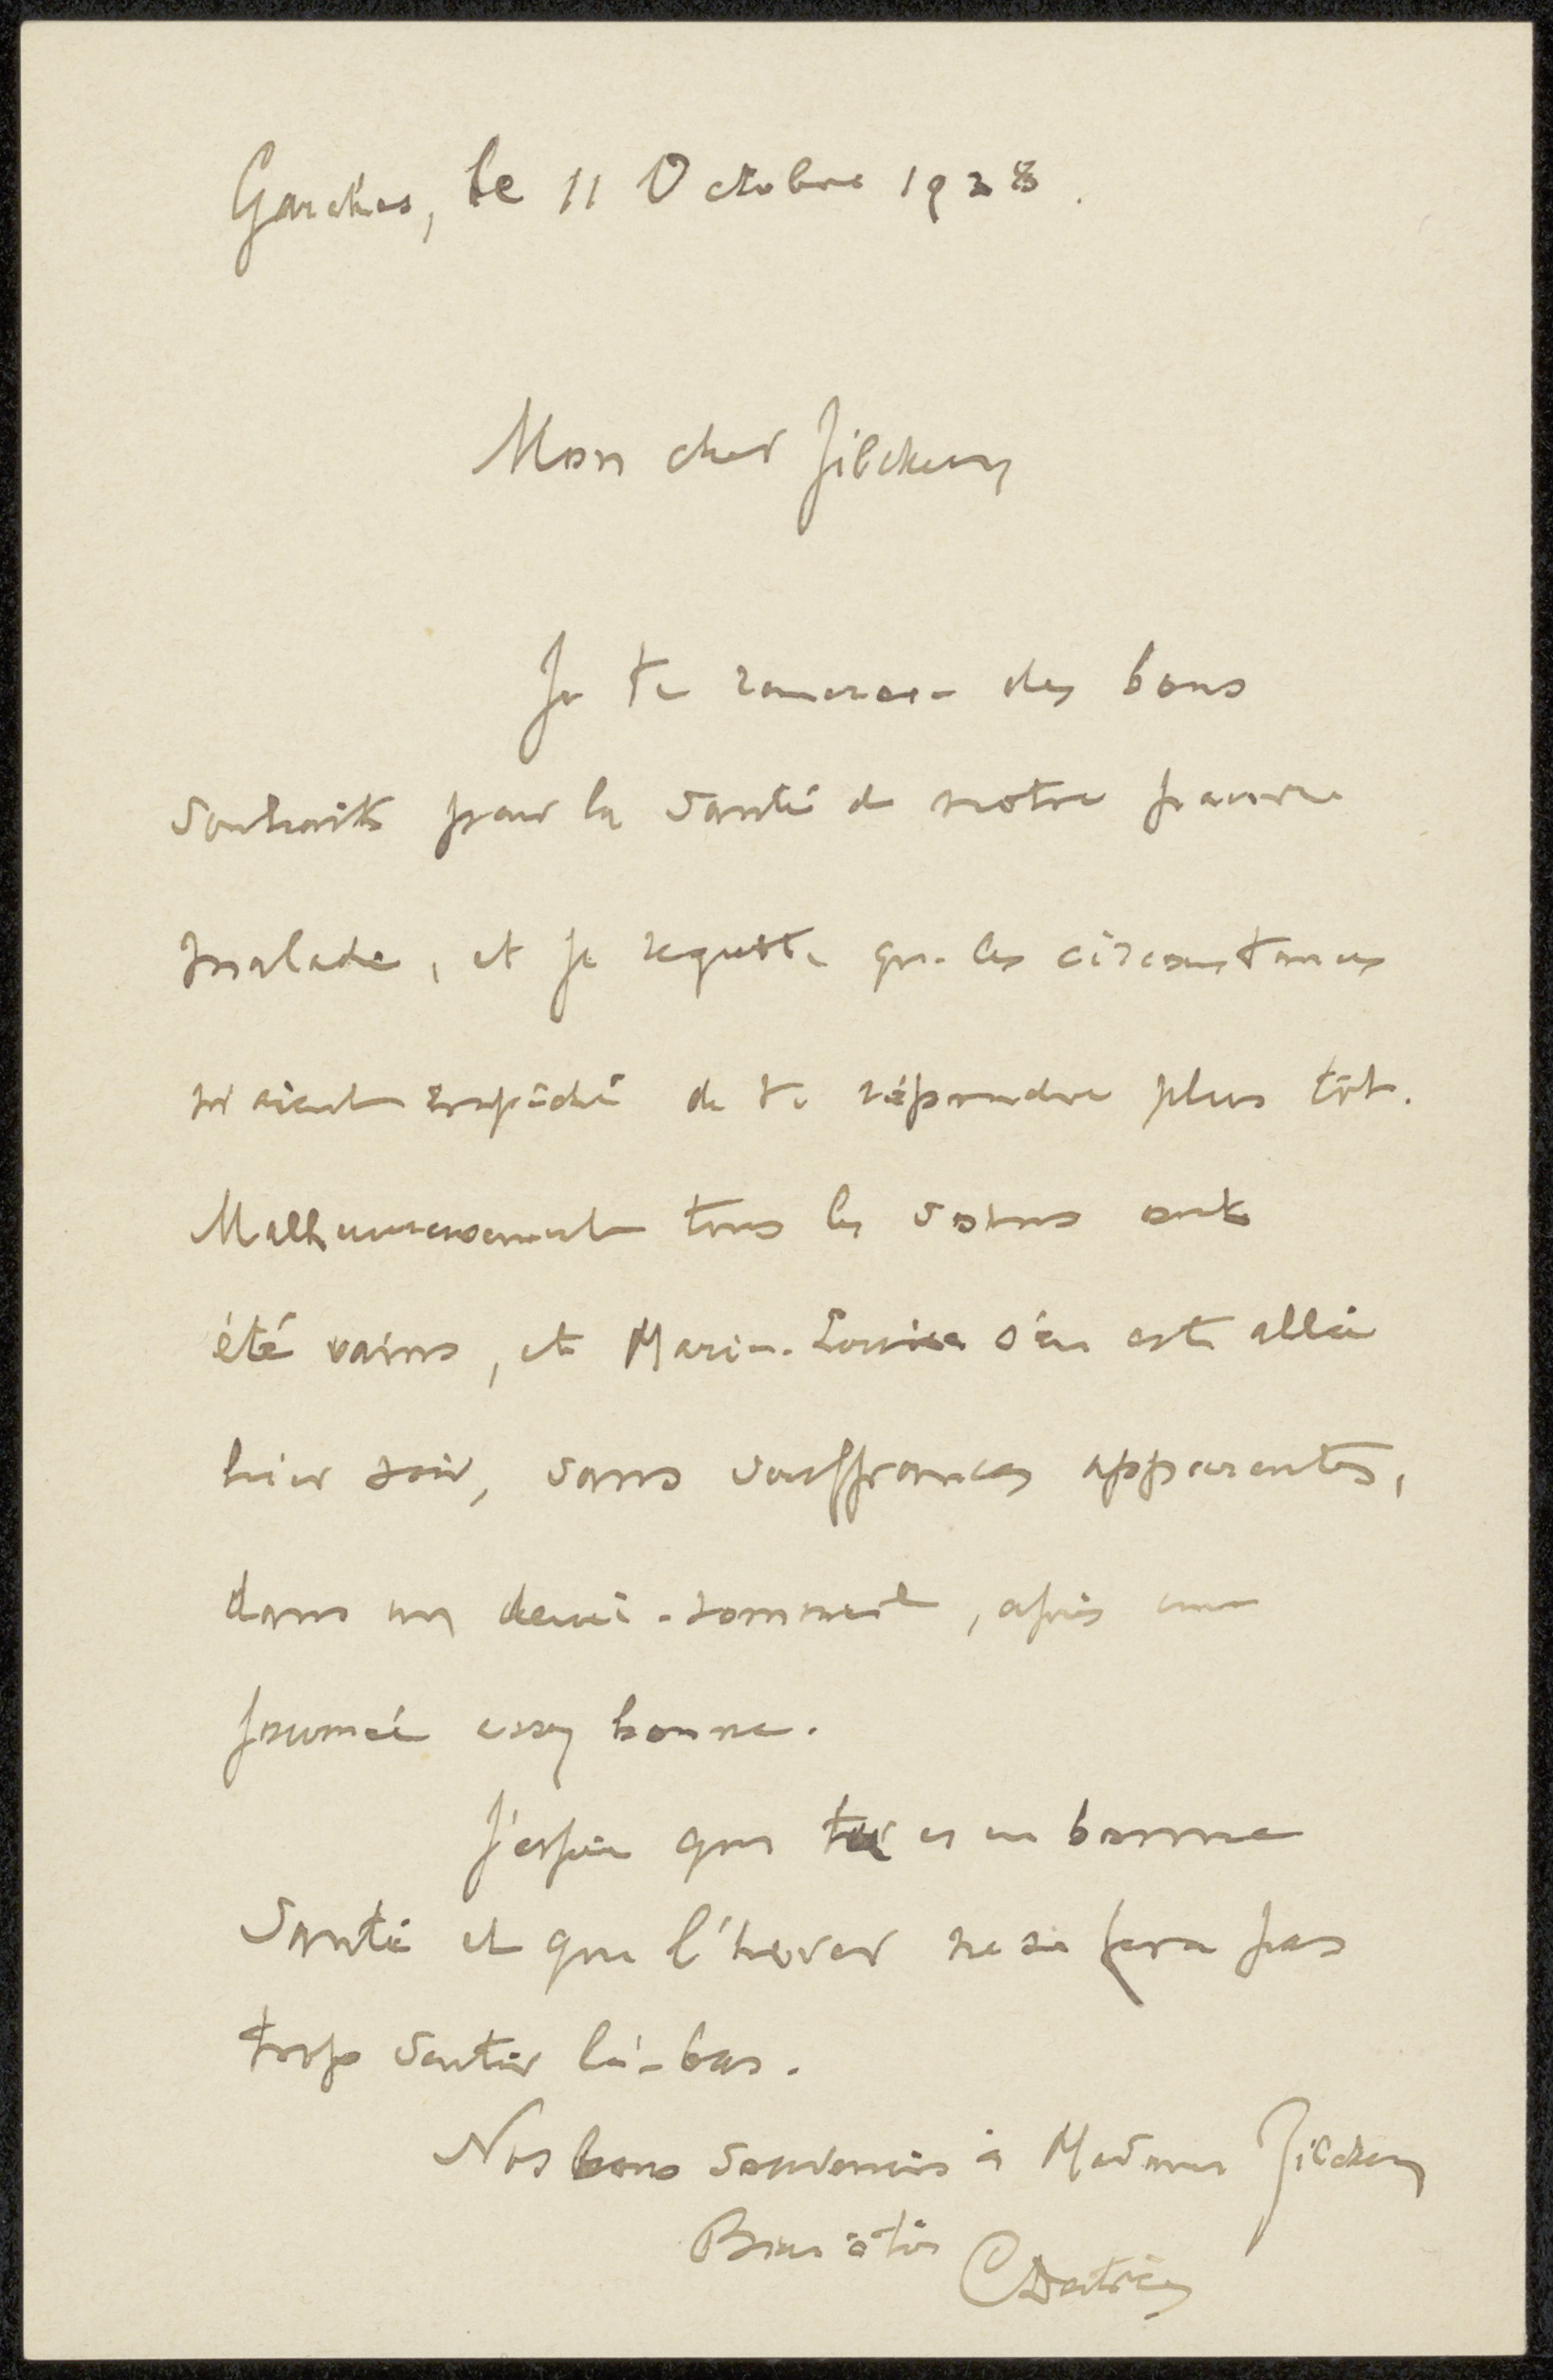 Garches, le 11 Octobre 1928.
Mon cher Zilcken
Je te remercie des bons
souhaits pour la santé de notre pauvre
malade, et je regrette que les circonstances
m'aient empêché de te répondre plus tôt.
Malheureusement tous les soins ont
été vains, et Marie-Louise s'en est allée
hier soir, sans souffrances apparentes,
dans un demi-sommeil, après une
journée assez bonne.
J'espère que tu es en bonne
santé et que l'hiver ne se fera pas
trop sentir là-bas.
Nos bons souvenirs à Madame Zilcken
Bien à toi